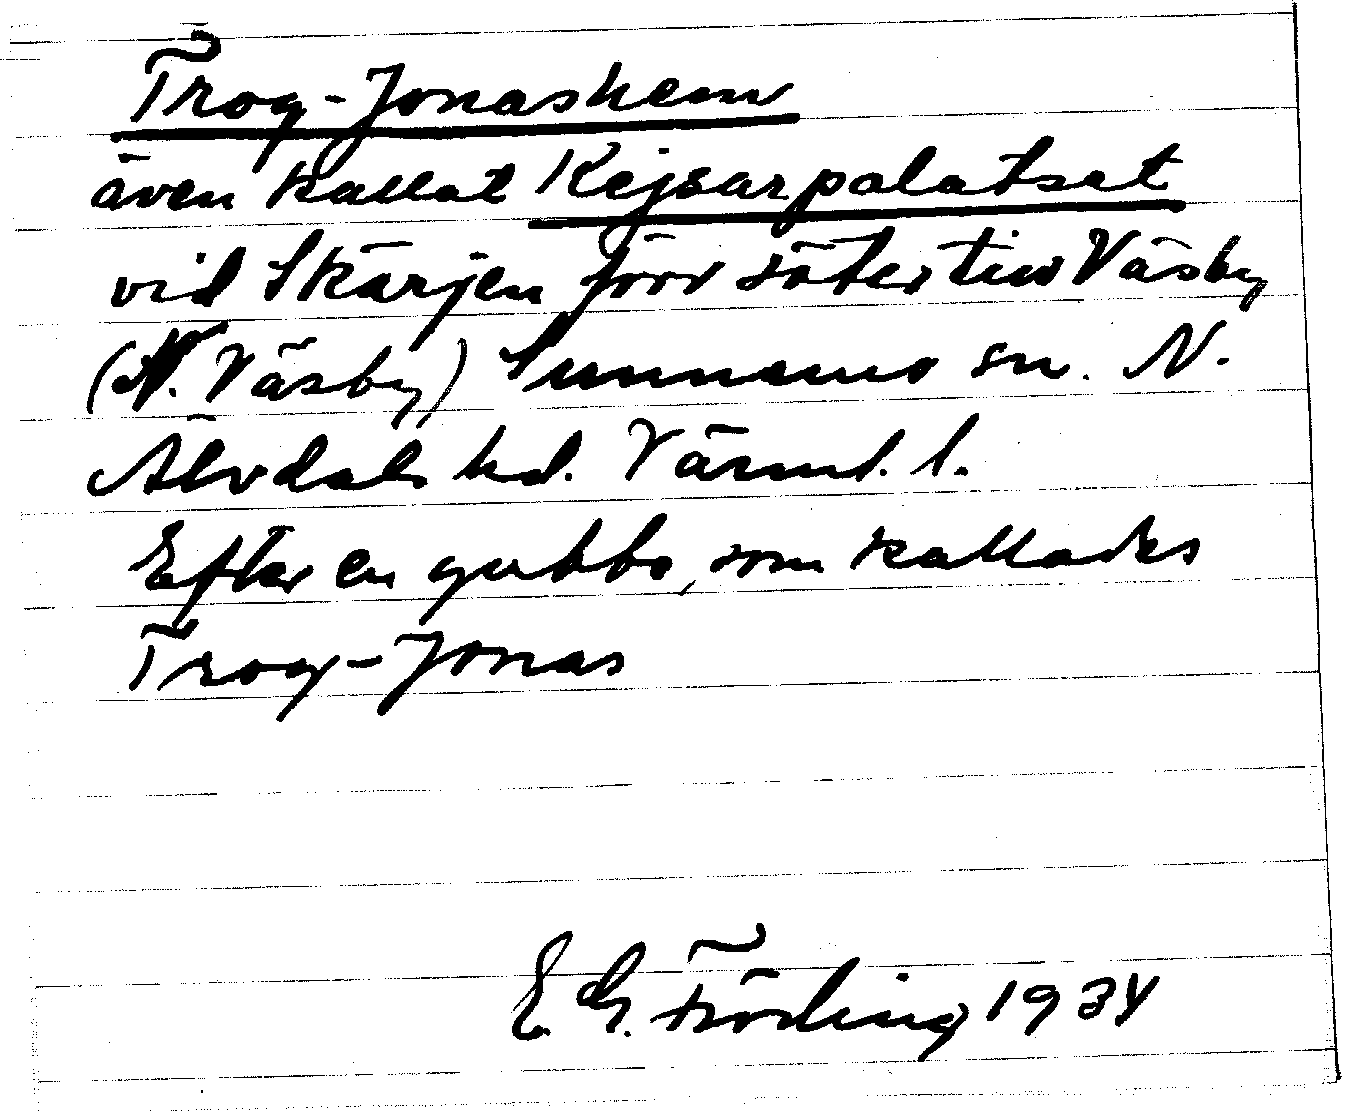 Trog-Jonashem
även kallat Kejsarpalatset
vid Skärjen förr säter till Väsby
(N. Väsby) Sunnemo sn. N.
Älvdals hd. Värml. l.
Efter en gubbe, som kallades
Trog-Jonas
E. G. Fröding 1934